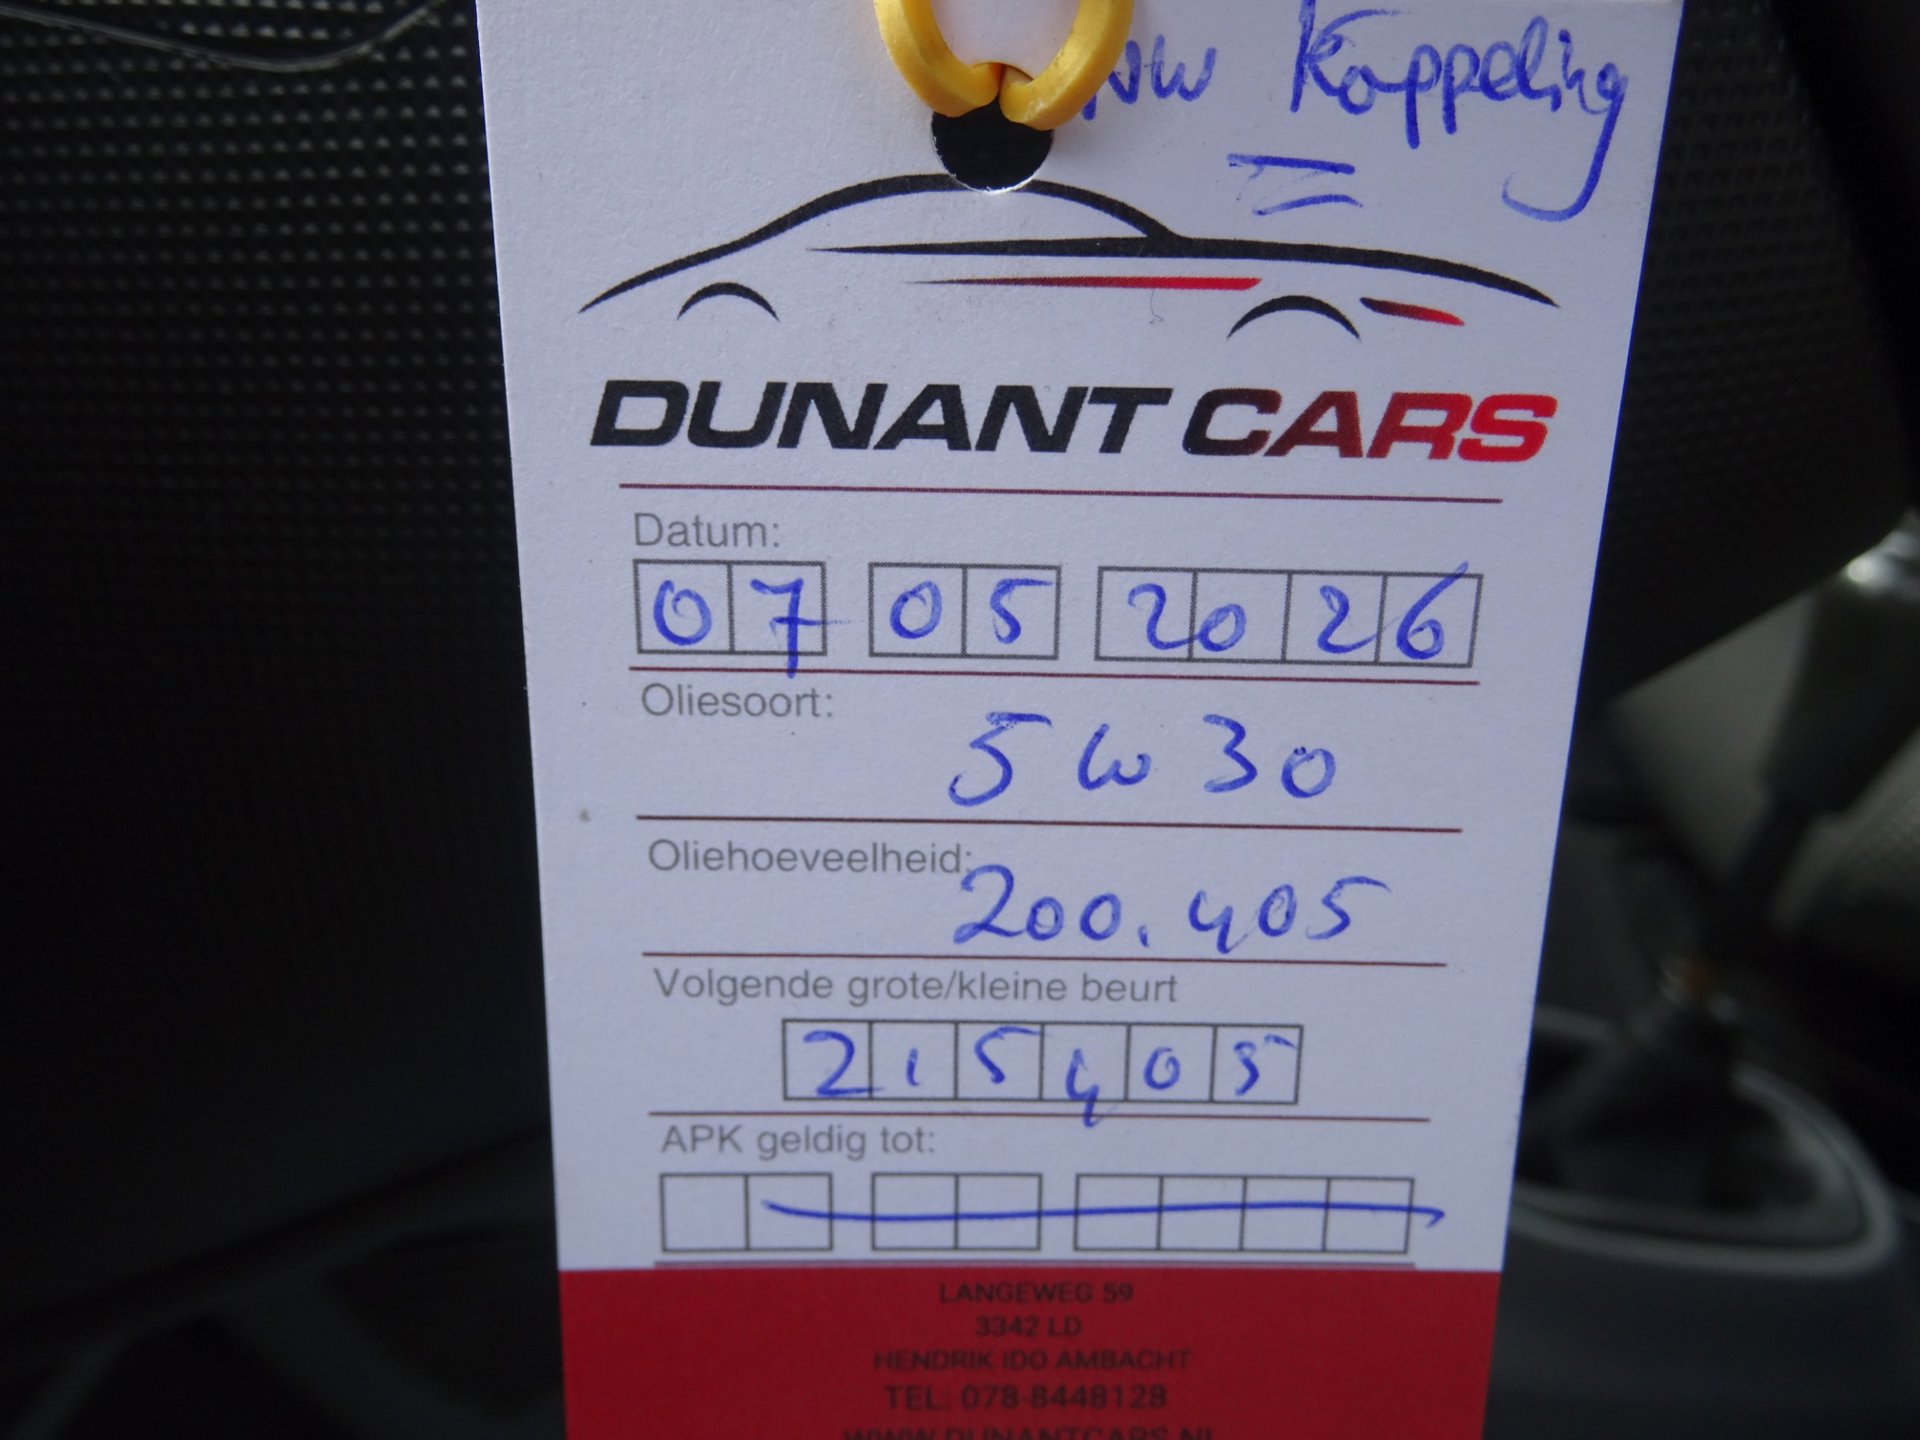 NW Koppeling
DUNANT CARS
Datum:
07 05 2026
Oliesoort:
5W30
Oliehoeveelheid:
200.405
Volgende grote/kleine beurt
215405
APK geldig tot:
LANGEWEG 59
3342 LD
HENDRIK IDO AMBACHT
TEL: 078-8448128
WWW.DUNANTCARS.NL